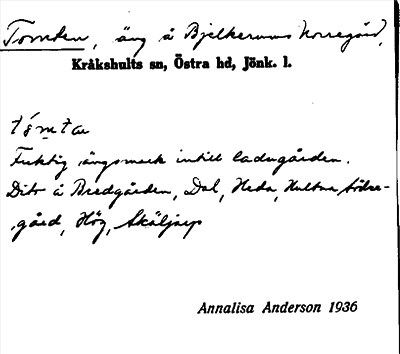 Tomten, äng å Bjelkerums Norregård,
Kråkshults sn, Östra hd, Jönk. l.
tómtæ
Fuktig ängsmark intill ladugården.
Dito å Bredgården, Dal, Heda, Hultna Södre-
gård, Hög, Skäljarp
Annalisa Anderson 1936